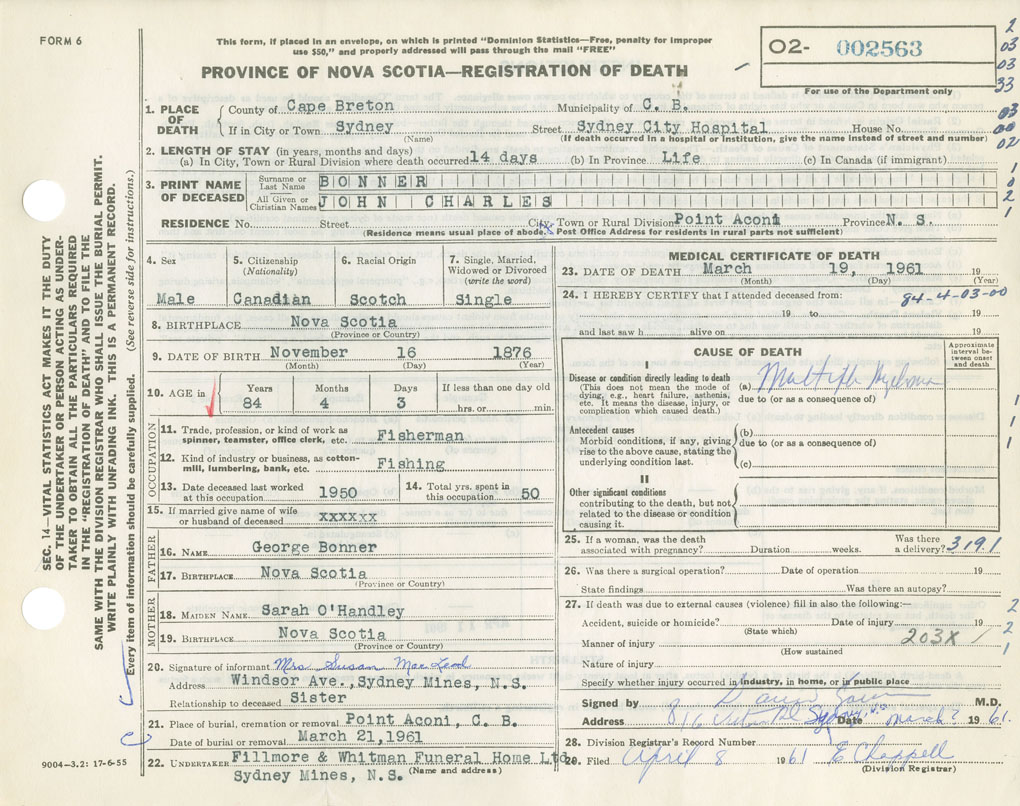 FORM 6
This form, if placed in an envelope, on which is printed "Dominion Statistics—Free, penalty for improper
use $50," and properly addressed will pass through the mail "FREE"
O2- 002563
For use of the Department only
2
03
03
33
03
00
02
1
0
2
1
PROVINCE OF NOVA SCOTIA—REGISTRATION OF DEATH
SEC. 14—VITAL STATISTICS ACT MAKES IT THE DUTY
OF THE UNDERTAKER OR PERSON ACTING AS UNDER-
TAKER TO OBTAIN ALL THE PARTICULARS REQUIRED
IN THE "REGISTRATION OF DEATH" AND TO FILE THE
SAME WITH THE DIVISION REGISTRAR WHO SHALL ISSUE THE BURIAL PERMIT.
WRITE PLAINLY WITH UNFADING INK. THIS IS A PERMANENT RECORD.
Every item of information should be carefully supplied. (See reverse side for instructions.)
1. PLACE OF DEATH
County of Cape Breton Municipality of C. B.
If in City or Town Sydney Street Sydney City Hospital House No.
(Name) (If death occurred in a hospital or institution, give the name instead of street and number)
2. LENGTH OF STAY (in years, months and days)
(a) In City, Town or Rural Division where death occurred 14 days (b) In Province Life (c) In Canada (if immigrant)
3. PRINT NAME OF DECEASED
Surname or Last Name BONNER
All Given or Christian Names JOHN CHARLES
RESIDENCE No. Street City, Town or Rural Division Point Aconi Province N. S.
(Residence means usual place of abode. Post Office Address for residents in rural parts not sufficient)
4. Sex Male
5. Citizenship (Nationality) Canadian
6. Racial Origin Scotch
7. Single, Married, Widowed or Divorced (write the word) Single
8. BIRTHPLACE Nova Scotia
(Province or Country)
9. DATE OF BIRTH November 16 1876
(Month) (Day) (Year)
10. AGE in
Years 84
Months 4
Days 3
If less than one day old
hrs. or min.
OCCUPATION
11. Trade, profession, or kind of work as spinner, teamster, office clerk, etc. Fisherman
12. Kind of industry or business, as cotton-mill, lumbering, bank, etc. Fishing
13. Date deceased last worked at this occupation 1950
14. Total yrs. spent in this occupation 50
15. If married give name of wife or husband of deceased xxxxxx
FATHER
16. NAME George Bonner
17. BIRTHPLACE Nova Scotia
(Province or Country)
MOTHER
18. MAIDEN NAME Sarah O'Handley
19. BIRTHPLACE Nova Scotia
(Province or Country)
20. Signature of informant Mrs Susan MacLeod
Address Windsor Ave., Sydney Mines, N.S.
Relationship to deceased Sister
21. Place of burial, cremation or removal Point Aconi, C. B.
Date of burial or removal March 21, 1961
22. UNDERTAKER Fillmore & Whitman Funeral Home Ltd
Sydney Mines, N.S. (Name and address)
9004-3.2: 17-6-55
MEDICAL CERTIFICATE OF DEATH
23. DATE OF DEATH March 19, 1961 19
(Month) (Day) (Year)
24. I HEREBY CERTIFY that I attended deceased from: 84-4-03-00
19 to 19
and last saw h alive on 19
CAUSE OF DEATH
Approximate interval between onset and death
I
Disease or condition directly leading to death
(This does not mean the mode of dying, e.g., heart failure, asthenia, etc. It means the disease, injury, or complication which caused death.)
(a) Multiple Myeloma
due to (or as a consequence of)
Antecedent causes
Morbid conditions, if any, giving rise to the above cause, stating the underlying condition last.
(b)
due to (or as a consequence of)
(c)
II
Other significant conditions
contributing to the death, but not related to the disease or condition causing it.
1
1
1
25. If a woman, was the death associated with pregnancy? Duration weeks. Was there a delivery? 3191
26. Was there a surgical operation? Date of operation 19
State findings Was there an autopsy?
27. If death was due to external causes (violence) fill in also the following:—
Accident, suicide or homicide? Date of injury 19
(State which)
Manner of injury 203X /
(How sustained
Nature of injury
2
2
1
Specify whether injury occurred in industry, in home, or in public place
Signed by M.D.
Address 816 Sydney N.S. Date March ? 1961.
28. Division Registrar's Record Number
29. Filed April 8 1961 E Chappell
(Division Registrar)